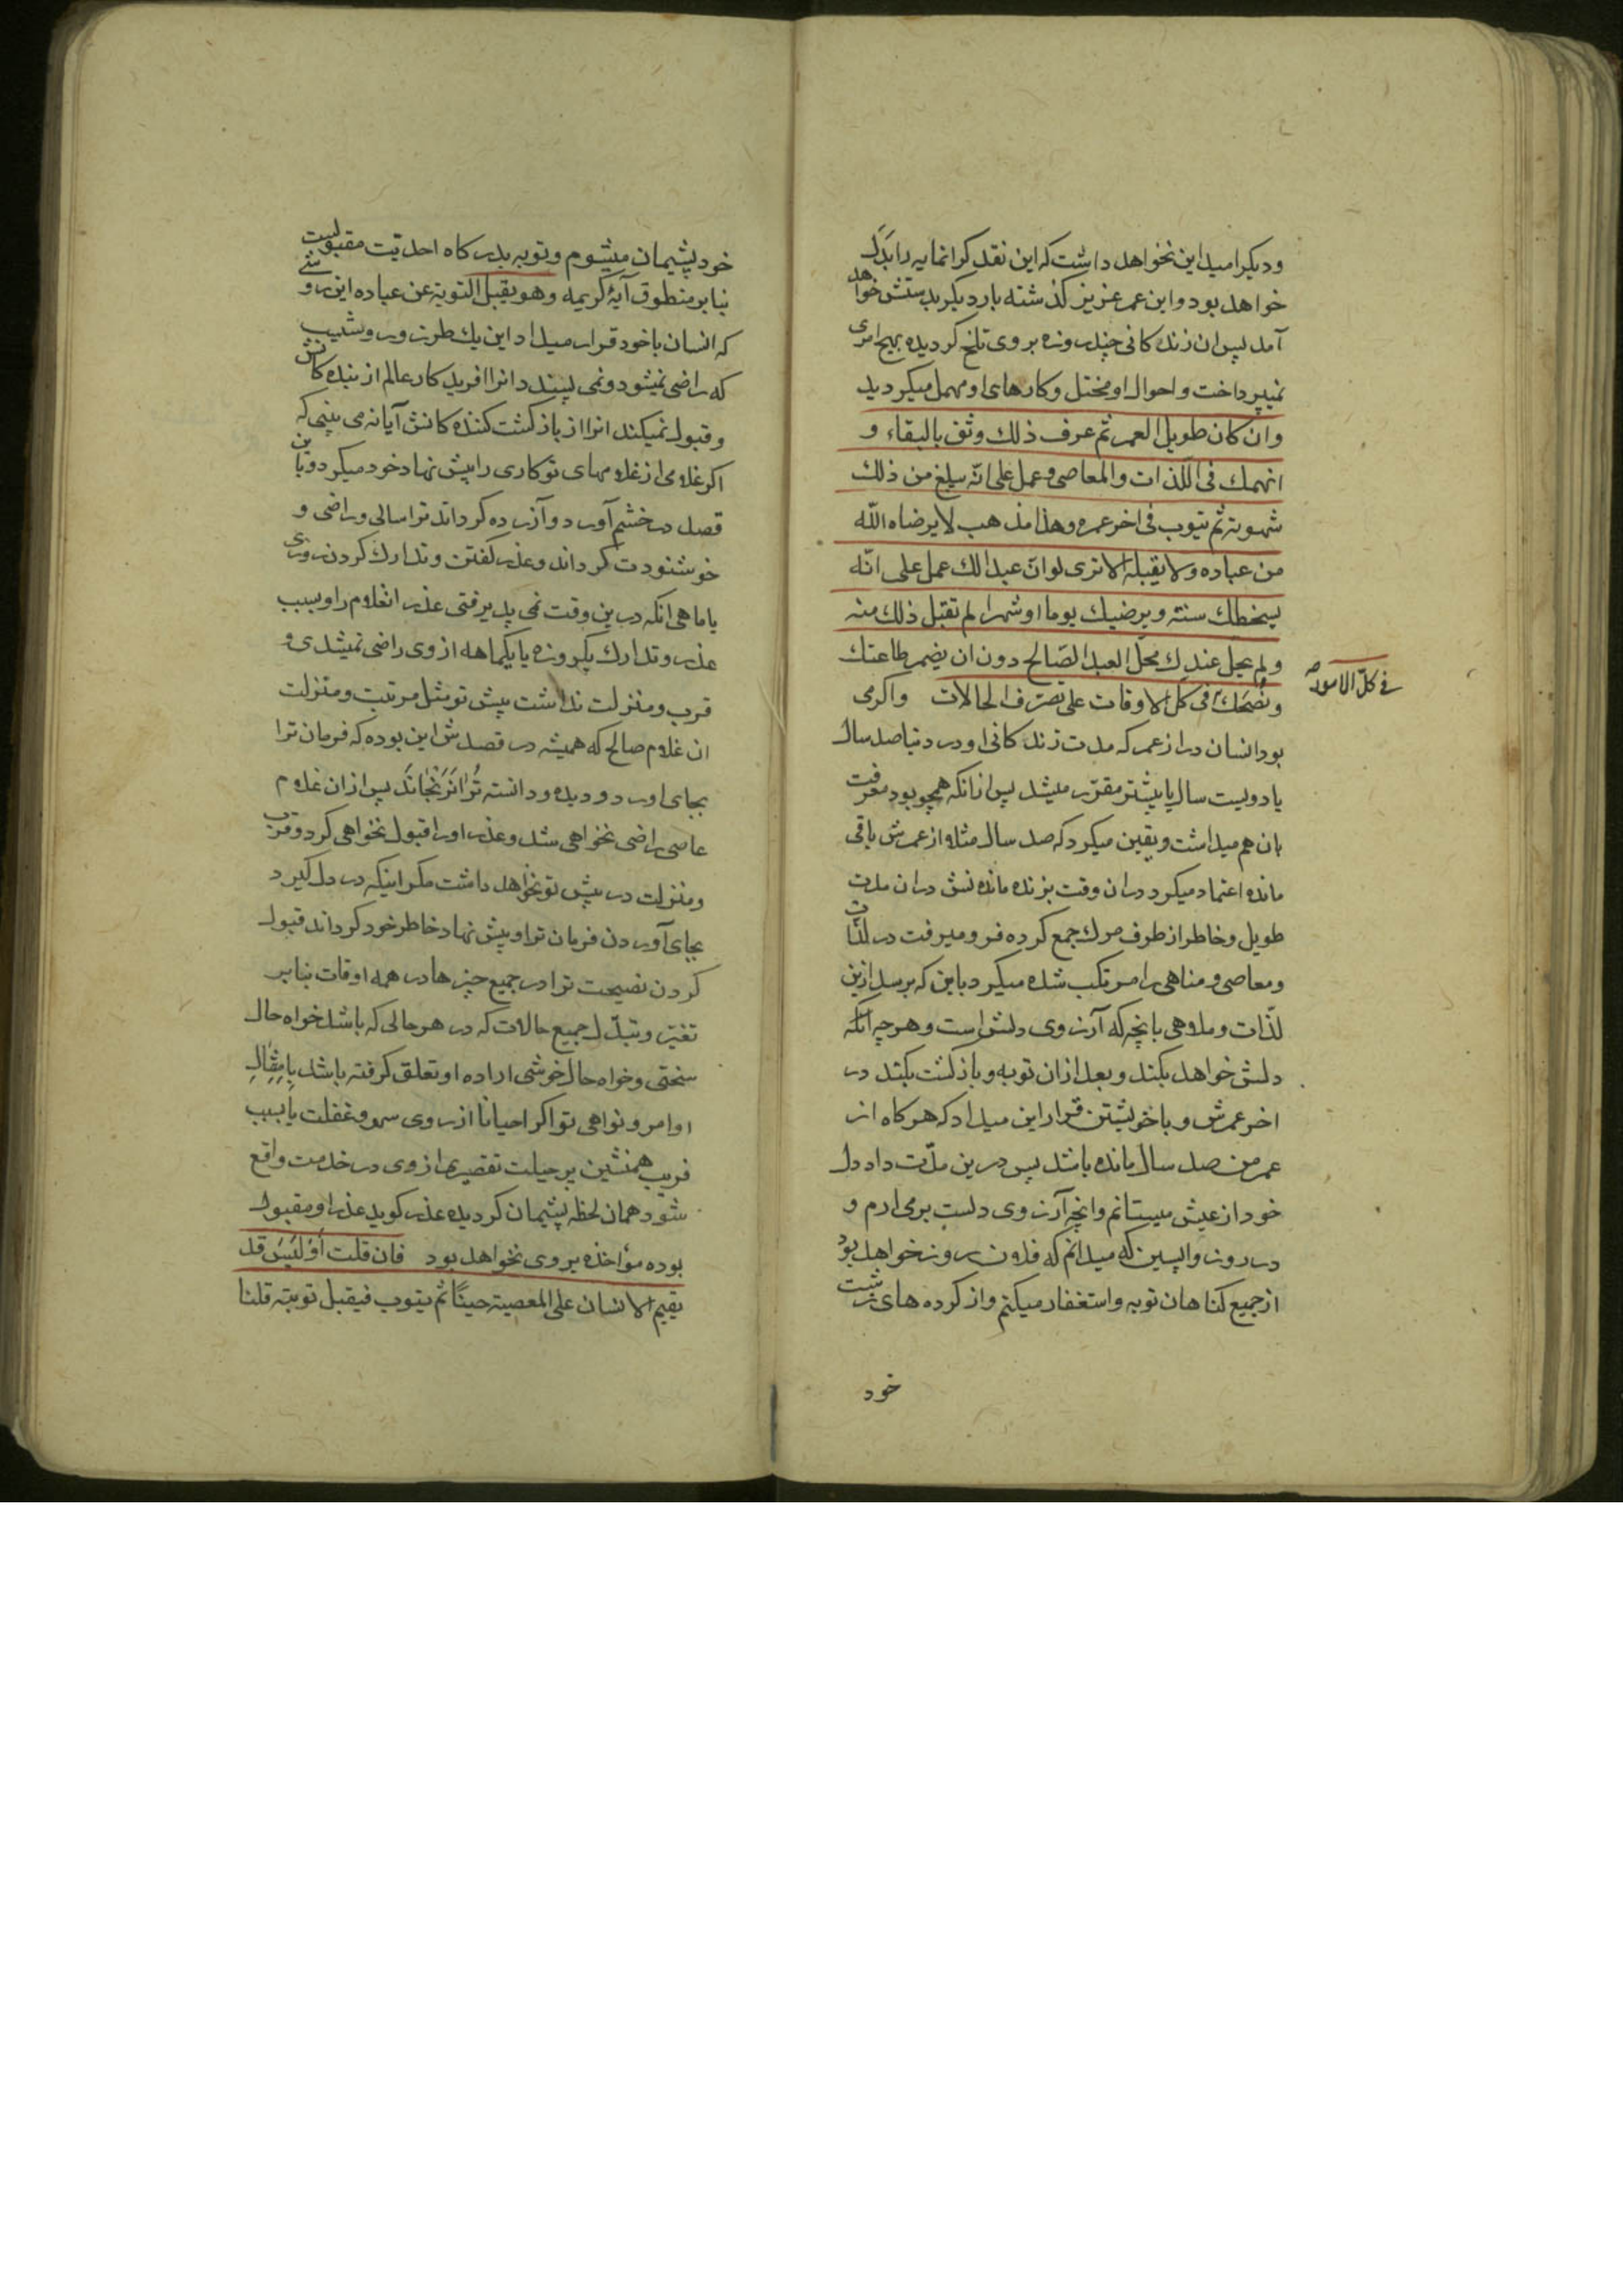 ودیگر امید این نخواهد داشت که این نقد گرانمایه را بَدَل
خواهد بود و این عمر عزیز گذشته بار دیگر بدستش خواهد
آمد پس ان زندگانی چند روزه بر وی تلخ گردیده بهیچ امری
نمیپرداخت و احوال او مختل و کارهای او مهمل میگردید
وان کان طویل العمر ثم عرف ذلك وثق بالبقاء و
انهمك فی اللذات والمعاصی وعمل علی انّه یبلغ من ذلك
شهوته ثم یتوب فی اخر عمره وهذا مذهب لا یرضاه اللّه
من عباده ولا یقبله الا تری لو انّ عبدا لك عمل علی انّه
یسخطك سنته ویرضیك یوما او شهرا لم تقبل ذلك منه
ولم یحل عندك محلّ العبد الصّالح دون ان یضمر طاعتك
ونُصحَك فی کلّ الاوقات علی تصرّف الحالات واگر می
فی کلّ الامور
بود انسان دراز عمر که مدت زندگانی او در دنیا صد سال
یا دویست سال یا بیشتر مقرّر میشد پس از انکه همچو بود معرفت
بان هم میداشت و یقین میکرد که صد سال مثلا از عمرش باقی
مانده اعتماد میکرد در ان وقت بزنده ماندنش در ان مدت
طویل و خاطر از طرف مرك جمع کرده فرو میرفت در لذّات
ومعاصی و مناهی را مرتکب شده میکرد باین که برسد ازین
لذّات وملاهی بانچه که آرزوی دلش است و هرچه انکه
دلش خواهد بکند و بعد از ان توبه و بازگشت بکند در
اخر عمرش و با خویشتن قرار این میداد که هرگاه از
عمر من صد سال مانده باشد پس درین مدّت داد دل
خود از عیش میستانم و انچه آرزوی دلست برمی ارم و
در روز واپسین که میدانم که فلان روز خواهد بود
از جمیع گناهان توبه و استغفار میکنم و از کرده های زشت
خود
خود پشیمان میشوم و توبه بدرگاه احدیّت مقبولست
بنابر منطوق آیهٔ کریمه وهو یقبل التوبة عن عباده این روشی
که انسان با خود قرار میداد این یك طرز و روشیست
که راضی نمیشود و نمی پسندد انرا افریدگار عالم از بندهکانش
و قبول نمیکند انرا از بازگشت کنندهکانش آیا نه می بینی که
اگر غلامی از غلامهای تو کاری را پیش نهاد خود میکرد و باین
قصد در خشم آورد و آزرده گرداند ترا سالی و راضی و
خوشنودت گرداند و عذر گفتن و تدارك کردن روزی
یا ماهی انکه درین وقت نمی پذیرفتی عذر انغلام را و بسبب
عذر و تدارك یکروزه یا یکماهه از وی راضی نمیشدی و
قرب و منزلت نداشت پیش تو مثل مرتبت و منزلت
ان غلام صالح که همیشه در قصدش این بوده که فرمان ترا
بجای اورد و دیده و دانسته تُرا نَرَنْجانَد پس از ان غلام
عاصی راضی نخواهی شد و عذر او را قبول نخواهی کرد و قرب
ومنزلت در پیش تو نخواهد داشت مگر اینکه در دل گیرد
بجای آوردن فرمان ترا و پیش نهاد خاطر خود گرداند قبول
کردن نصیحت ترا در جمیع چیزها در همه اوقات بنابر
تغیّر و تبدّل جمیع حالات که در هر حالی که باشد خواه حال
سختی و خواه حال خوشی اراده او تعلق گرفته باشد بامتثالِ
اوامر و نواهی تو اگر احیانا از روی سهو و غفلت یا بسبب
فریب همنشین پر حیلت تقصیری از وی در خدمت واقع
شود همان لحظه پشیمان گردیده عذر گوید عذر او مقبول
بوده مؤاخذه بر وی نخواهد بود فان قلت أوَلَیسَ قد
یقیم الانسان علی المعصیة حینًا ثم یتوب فیقبل توبته قلنا